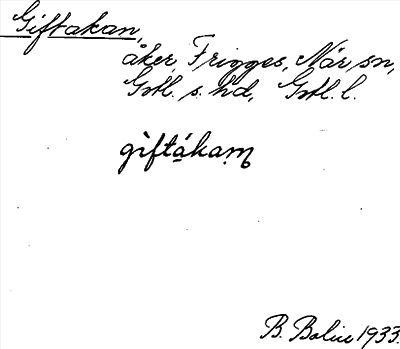 Giftakan,
åker, Frigges, När sn,
Gotl. s. hd, Gotl. l.
gìftákaṃ
B. Bolin 1933.